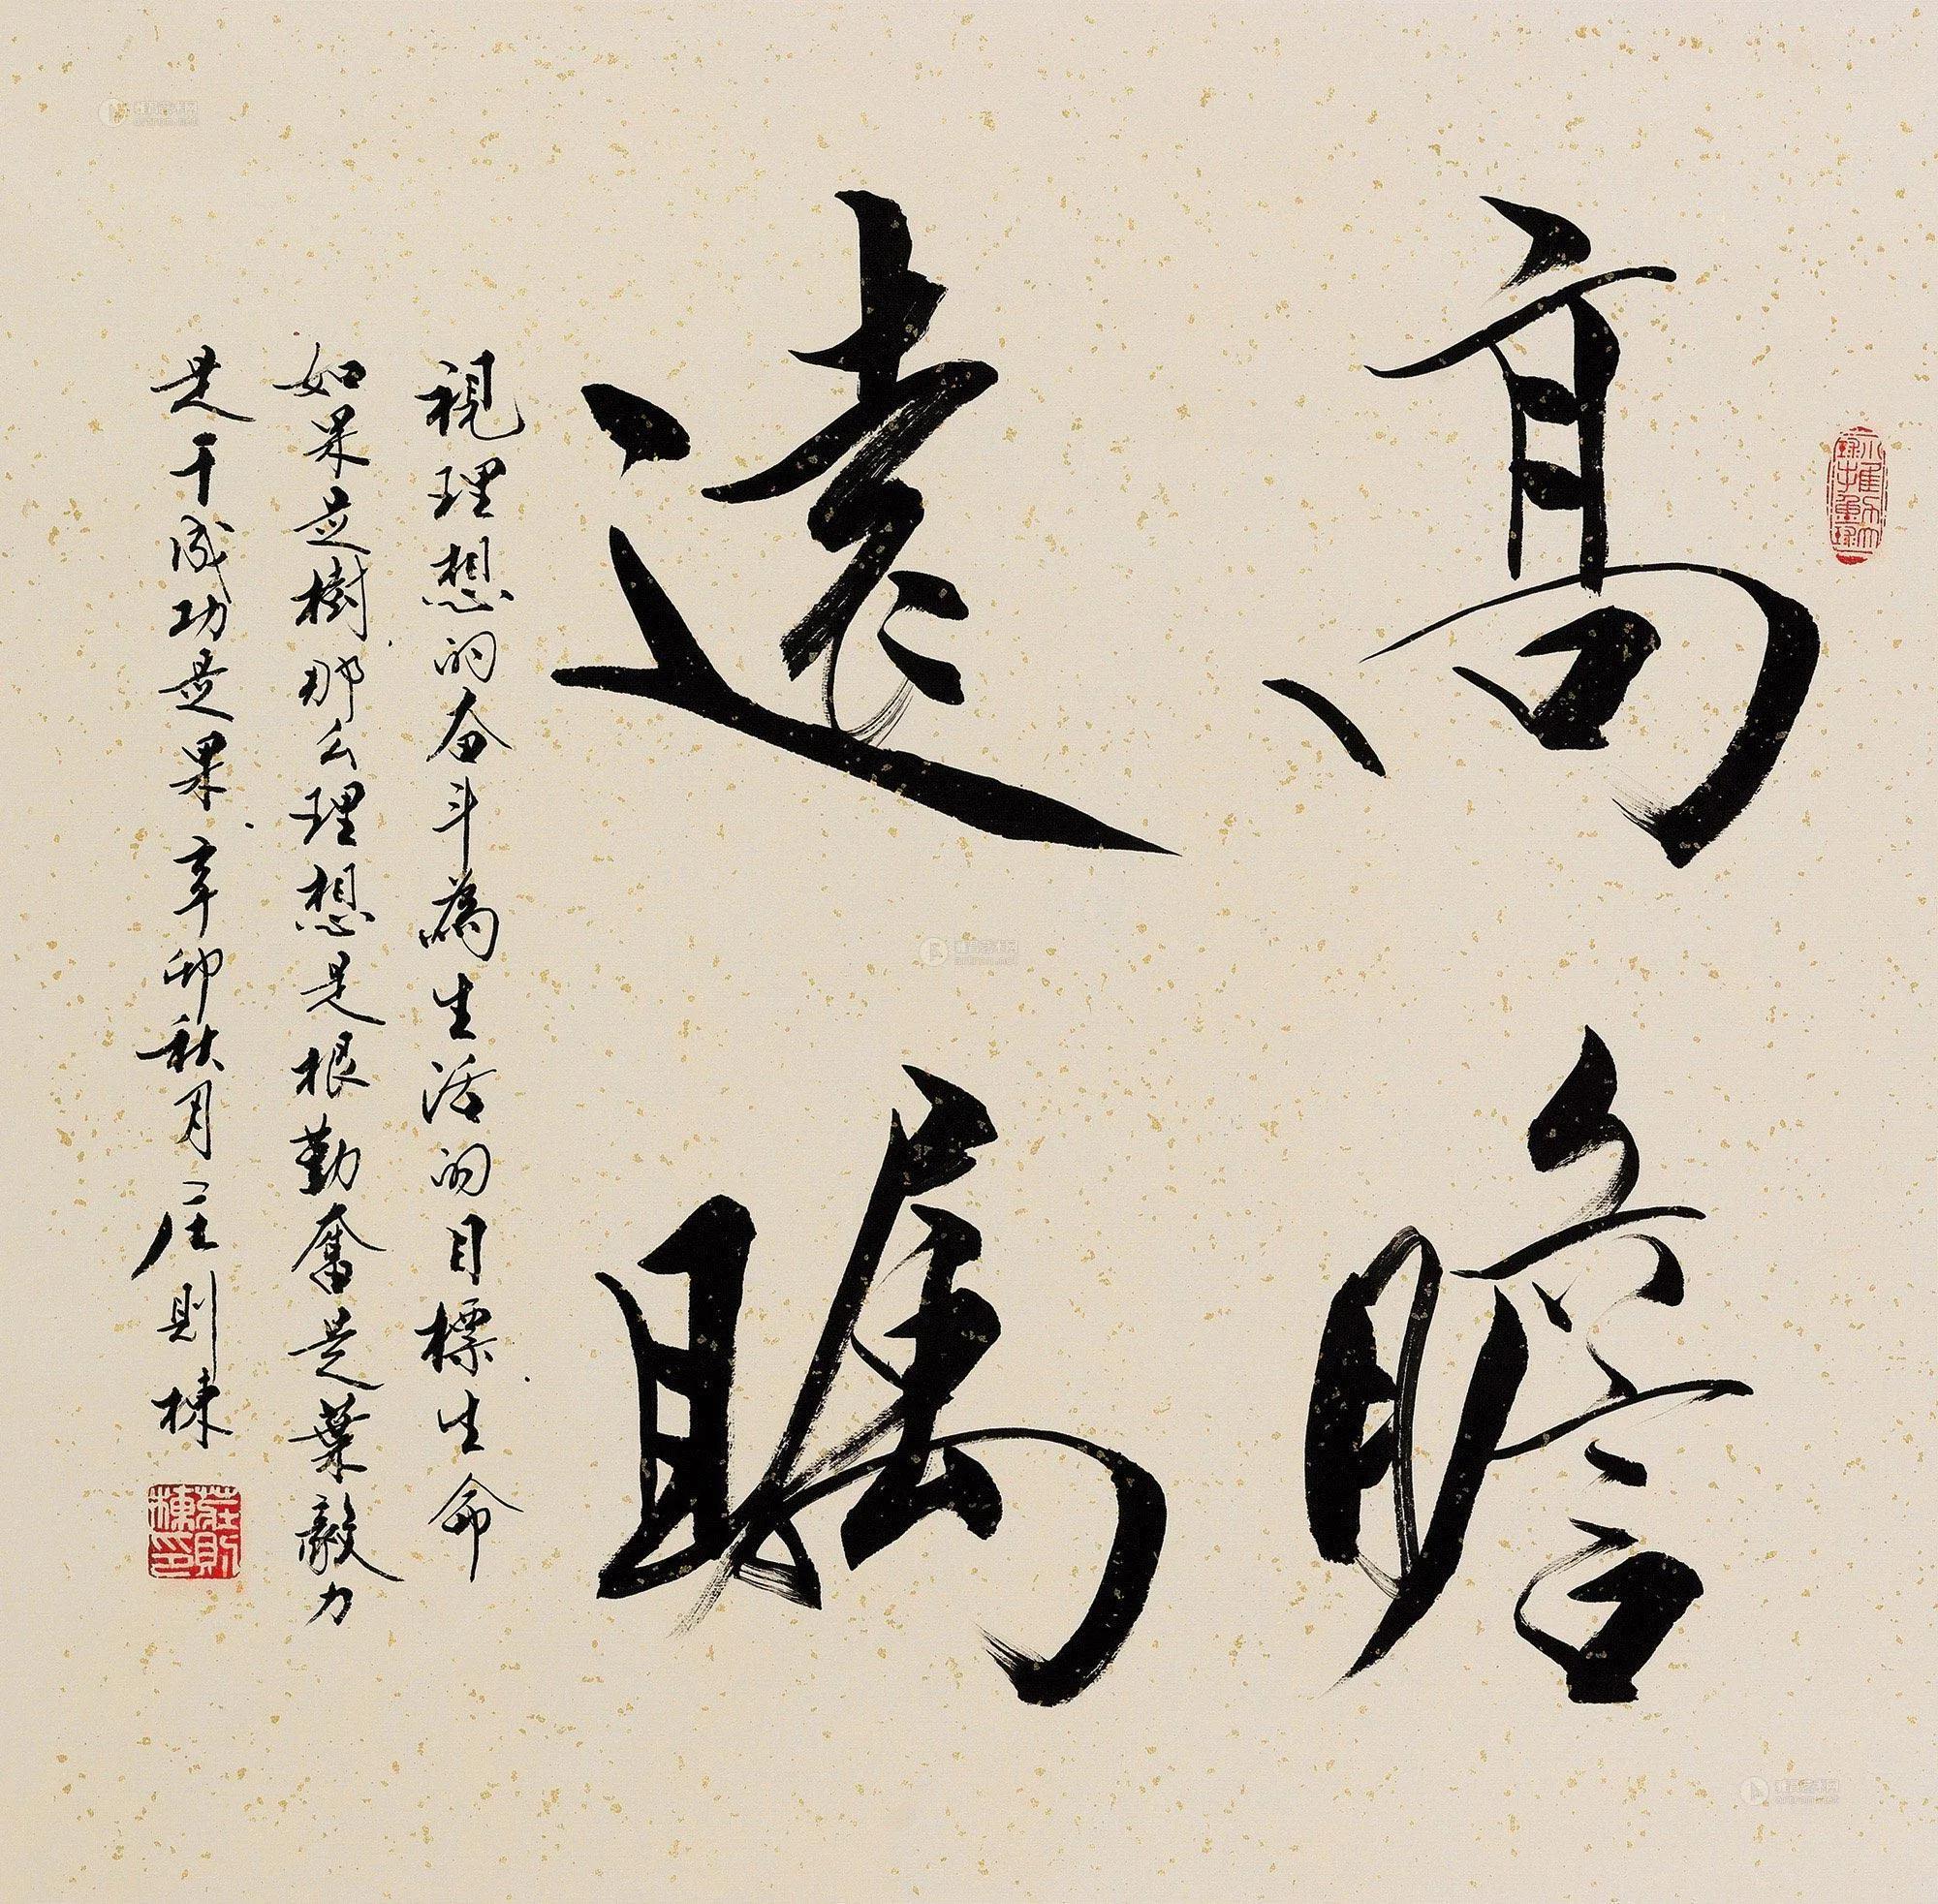 高瞻
遠矚
視理想的奋斗為生活的目標生命
如果是樹那么理想是根勤奮是葉毅力
是干成功是果辛卯秋月庄則棟
莊則棟印